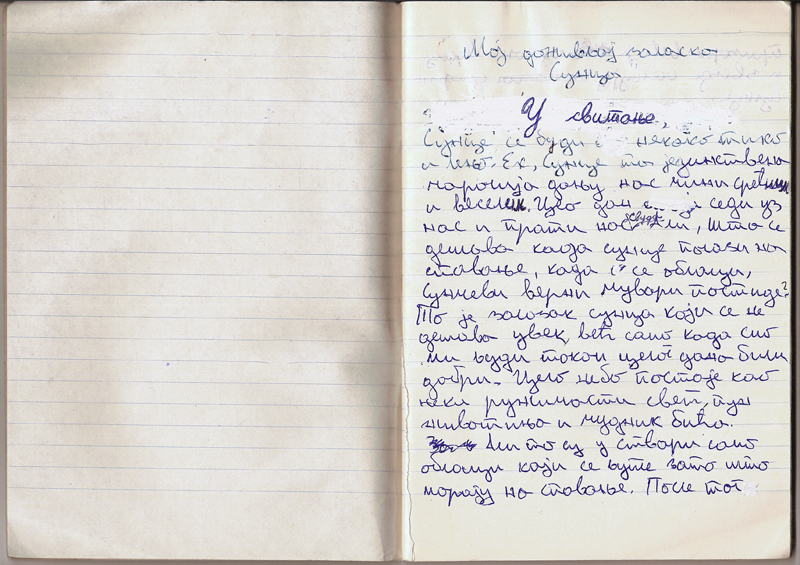 Мој доживљај заласка
Сунца
У свитање,
Сунце се буди некако тихо
и лењо. Ех, Сунце та јединствена
чаролија дању нас чини срећним
и веселим. Цео дан седи уз
нас и прати нас свуда. Али, шта се
дешава када сунце полази на
спавање, када се облаци,
Сунчеви верни чувари постиде?
То је залазак сунца који се не
дешава увек, већ само када смо
ми људи током целог дана били
добри. Цело небо постаје као
неки ружичасти свет, пун
животиња и чудник бића.
Али то су у ствари само
облаци који се љуте зато што
морају на спавање. После тог